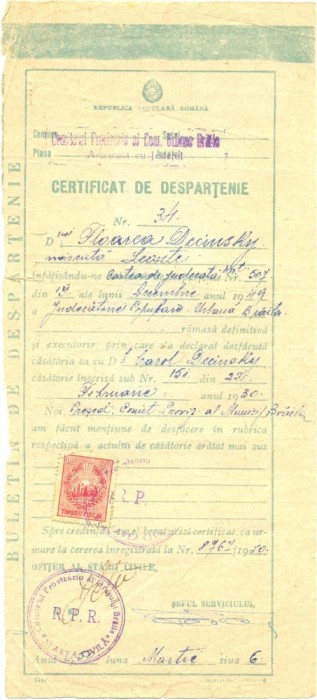 REPUBLICA POPULARĂ ROMÂNĂ
Comitetul Provizoriu al Com. Urbane Brăila
Plasa
CERTIFICAT DE DESPARȚENIE
Nr. 34
D Floarea Decinsky
născută Leonte
înfățișându-ne Cartea de judecată Nr. 507
din 9 ale lunii Decembrie anul 1949
a Judecătoriei Populare Urbană Brăila
rămasă definitivă
și executorie prin care s'a declarat desfăcută
căsătoria sa cu D Carol Decinsky
căsătorie înscrisă sub Nr. 151 din 23
Februarie anul 1930.
Noi, Președ. Comit. Proviz. al Munic. Brăila
am făcut mențiune de desfacere în rubrica
respectivă a actului de căsătorie arătat mai sus
R. P.
TIMBRU FISCAL
Spre credință am eliberat acest certificat, ca ur-
mare la cererea înregistrată la Nr. 8767/1950.
OFIȚER AL STĂRII CIVILE,
ȘEFUL SERVICIULUI,
R. P. R.
STAREA CIVILĂ
Anul luna Martie ziua 6
BULETIN DE DESPARȚENIE